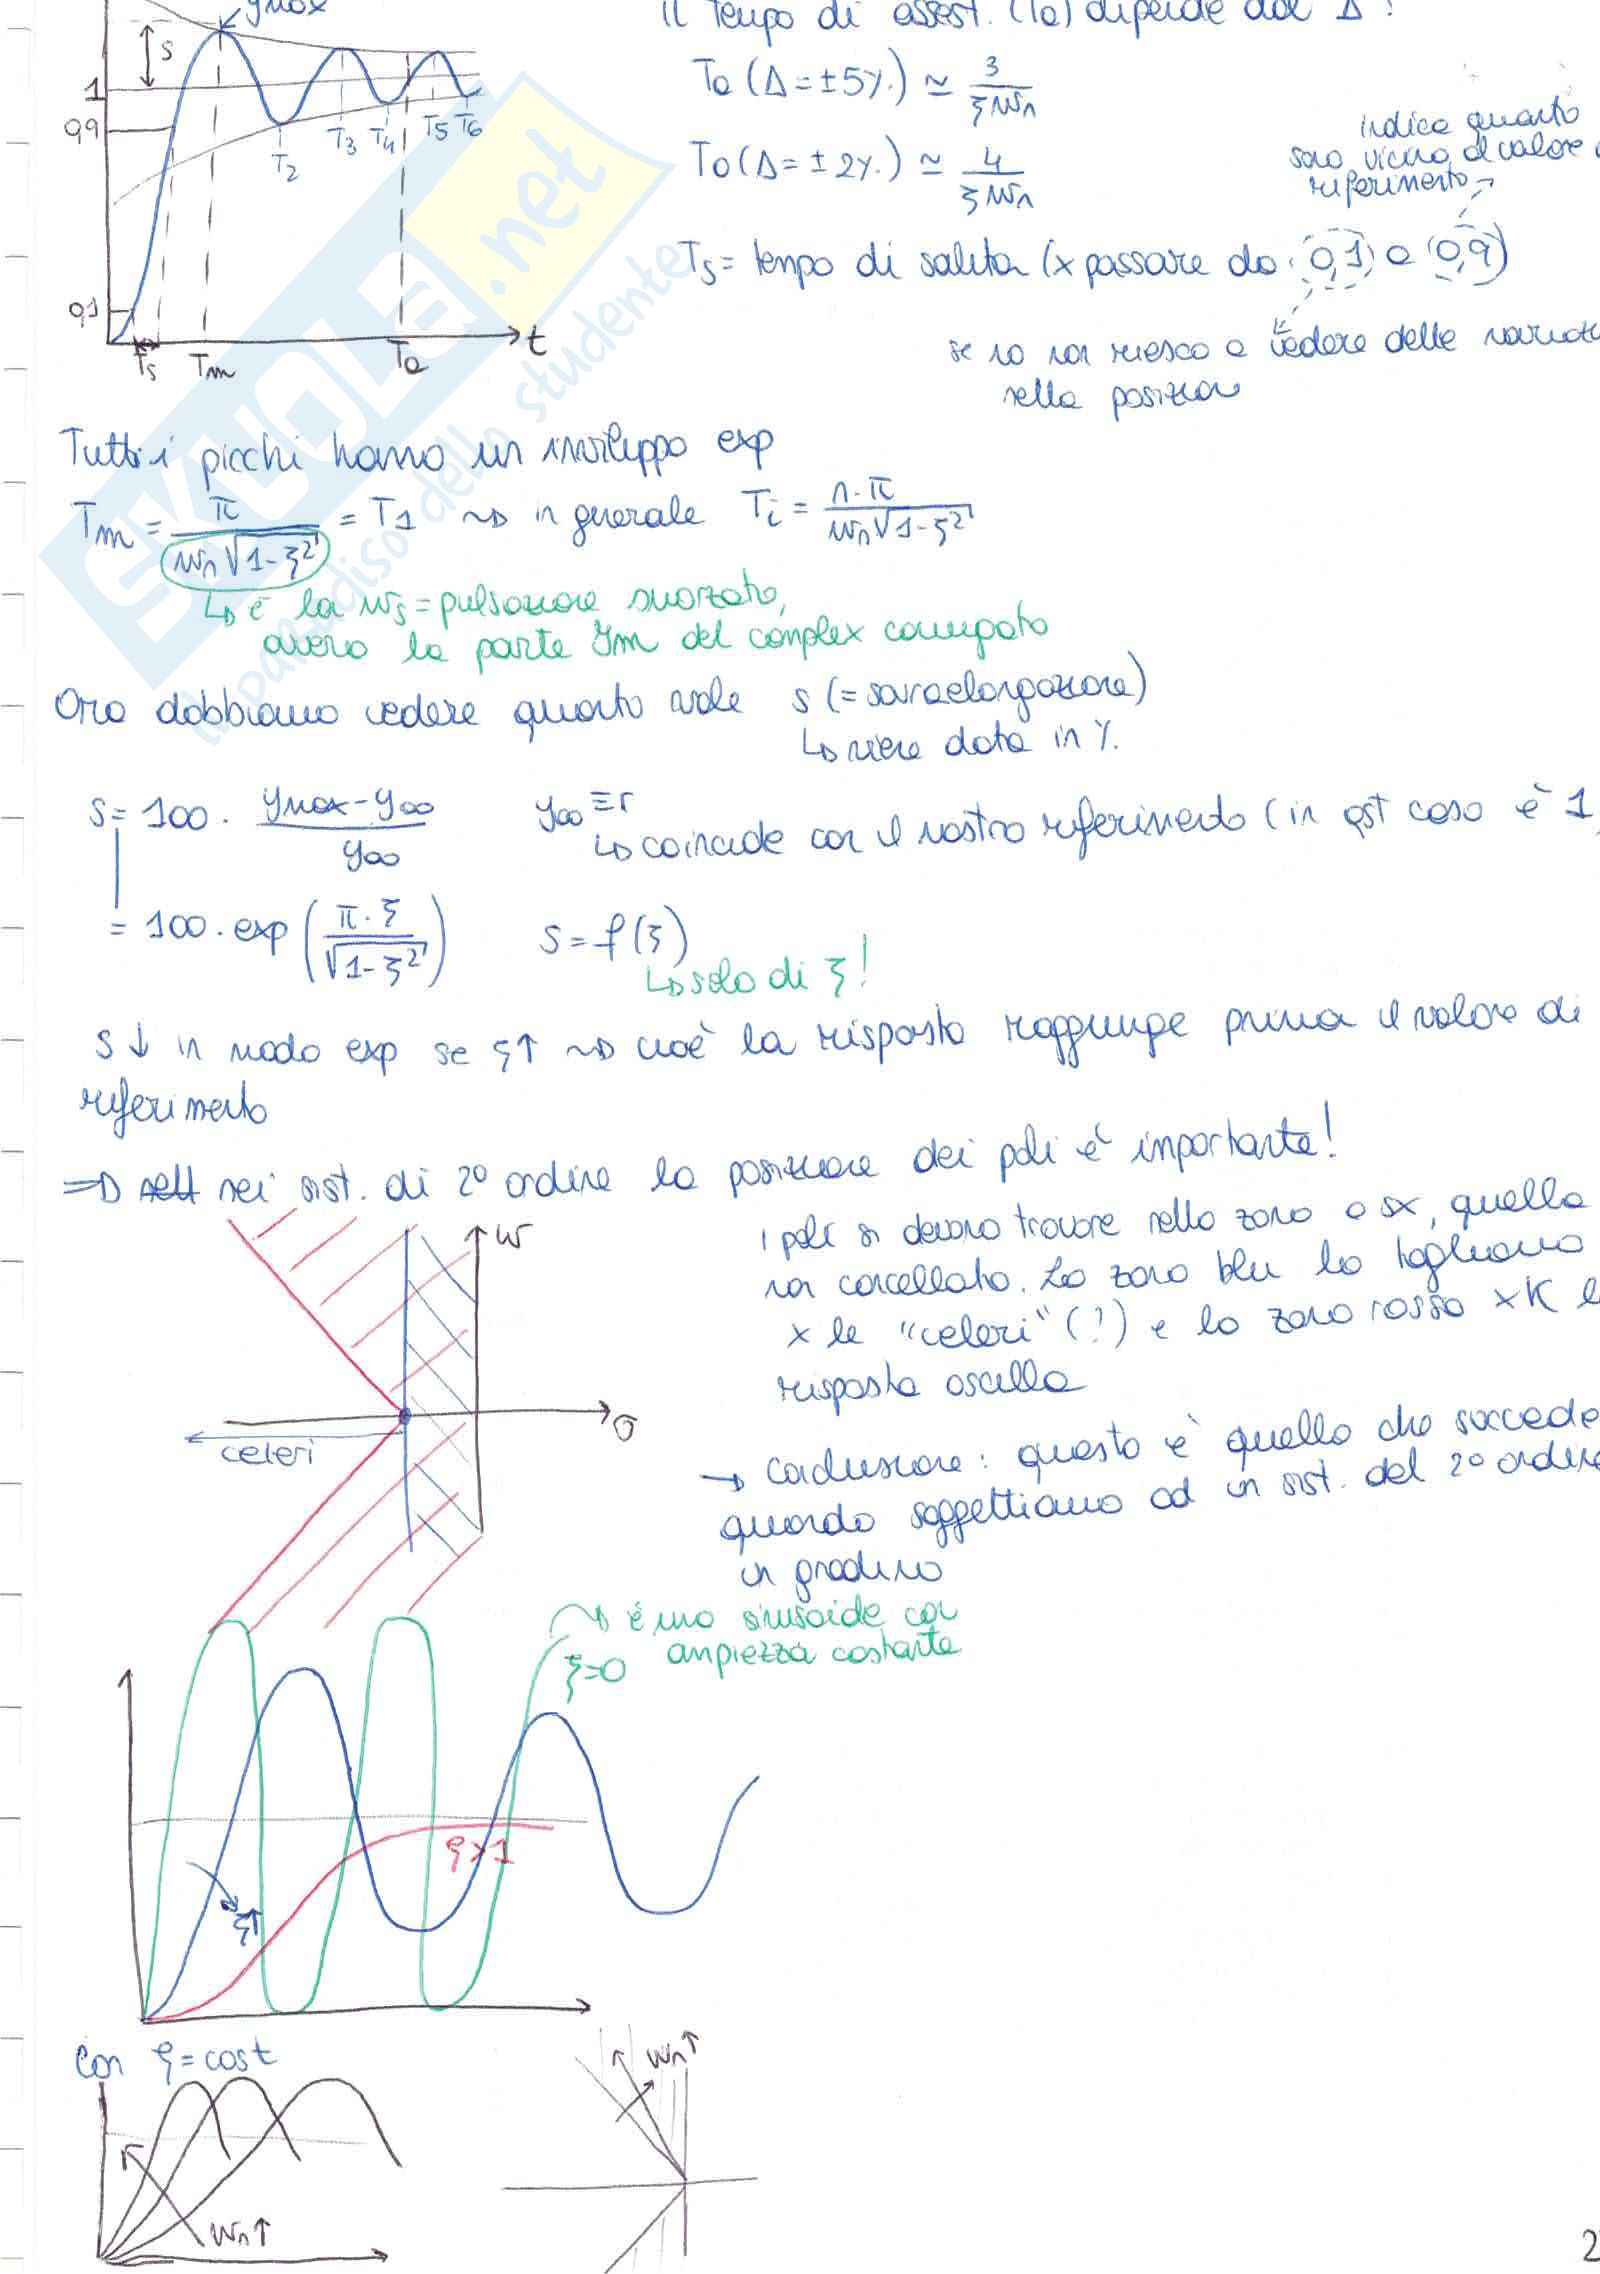 ymax
Il tempo di assest. (Ta) dipende dal Δ:
S
1
0,9
0,1
T2
T3
T4
T5
T6
Ts
Tm
Ta
t
Ta (Δ=±5%) ≃ 3/(ξωn)
Ta (Δ=±2%) ≃ 4/(ξωn)
indica quanto
sono vicino al valore di
riferimento
Ts = tempo di salita (x passare da 0,1 a 0,9)
se io non riesco a vedere delle
nella posizione
Tutti i picchi hanno un inviluppo exp
Tm = π/(ωn√(1-ξ²)) = T1 ~> in generale Ti = n·π/(ωn√(1-ξ²))
↳ è la ωs = pulsazione smorzata,
ovvero la parte Im del complex coniugato
Ora dobbiamo vedere quanto vale s (=sovraelongazione)
↳ viene data in %.
S = 100 · (ymax - y∞)/y∞ y∞ ≡ r
↳ coincide con il nostro riferimento (in qst caso è 1
= 100 · exp (π·ξ/√(1-ξ²)) S = f(ξ)
↳ solo di ξ!
S↓ in modo exp se ξ↑ ~> cioè la risposta raggiunge prima il valore di
riferimento
=> nei sist. di 2° ordine la posizione dei poli è importante!
ω
σ
celeri
i poli si devono trovare nella zona a sx, quella
non cancellata. La zona blu la togliamo
x le "celeri" (?) e la zona rossa xK la
risposta oscilla
→ conclusione: questo è quello che succede
quando soggettiamo ad un sist. del 2° ordine
un gradino
~> è una sinusoide con
ampiezza costante
ξ=0
ξ>1
ξ↑
Con ξ=cost
ωn↑
ωn↑
2
SKUOLA.net
il paradiso dello studente